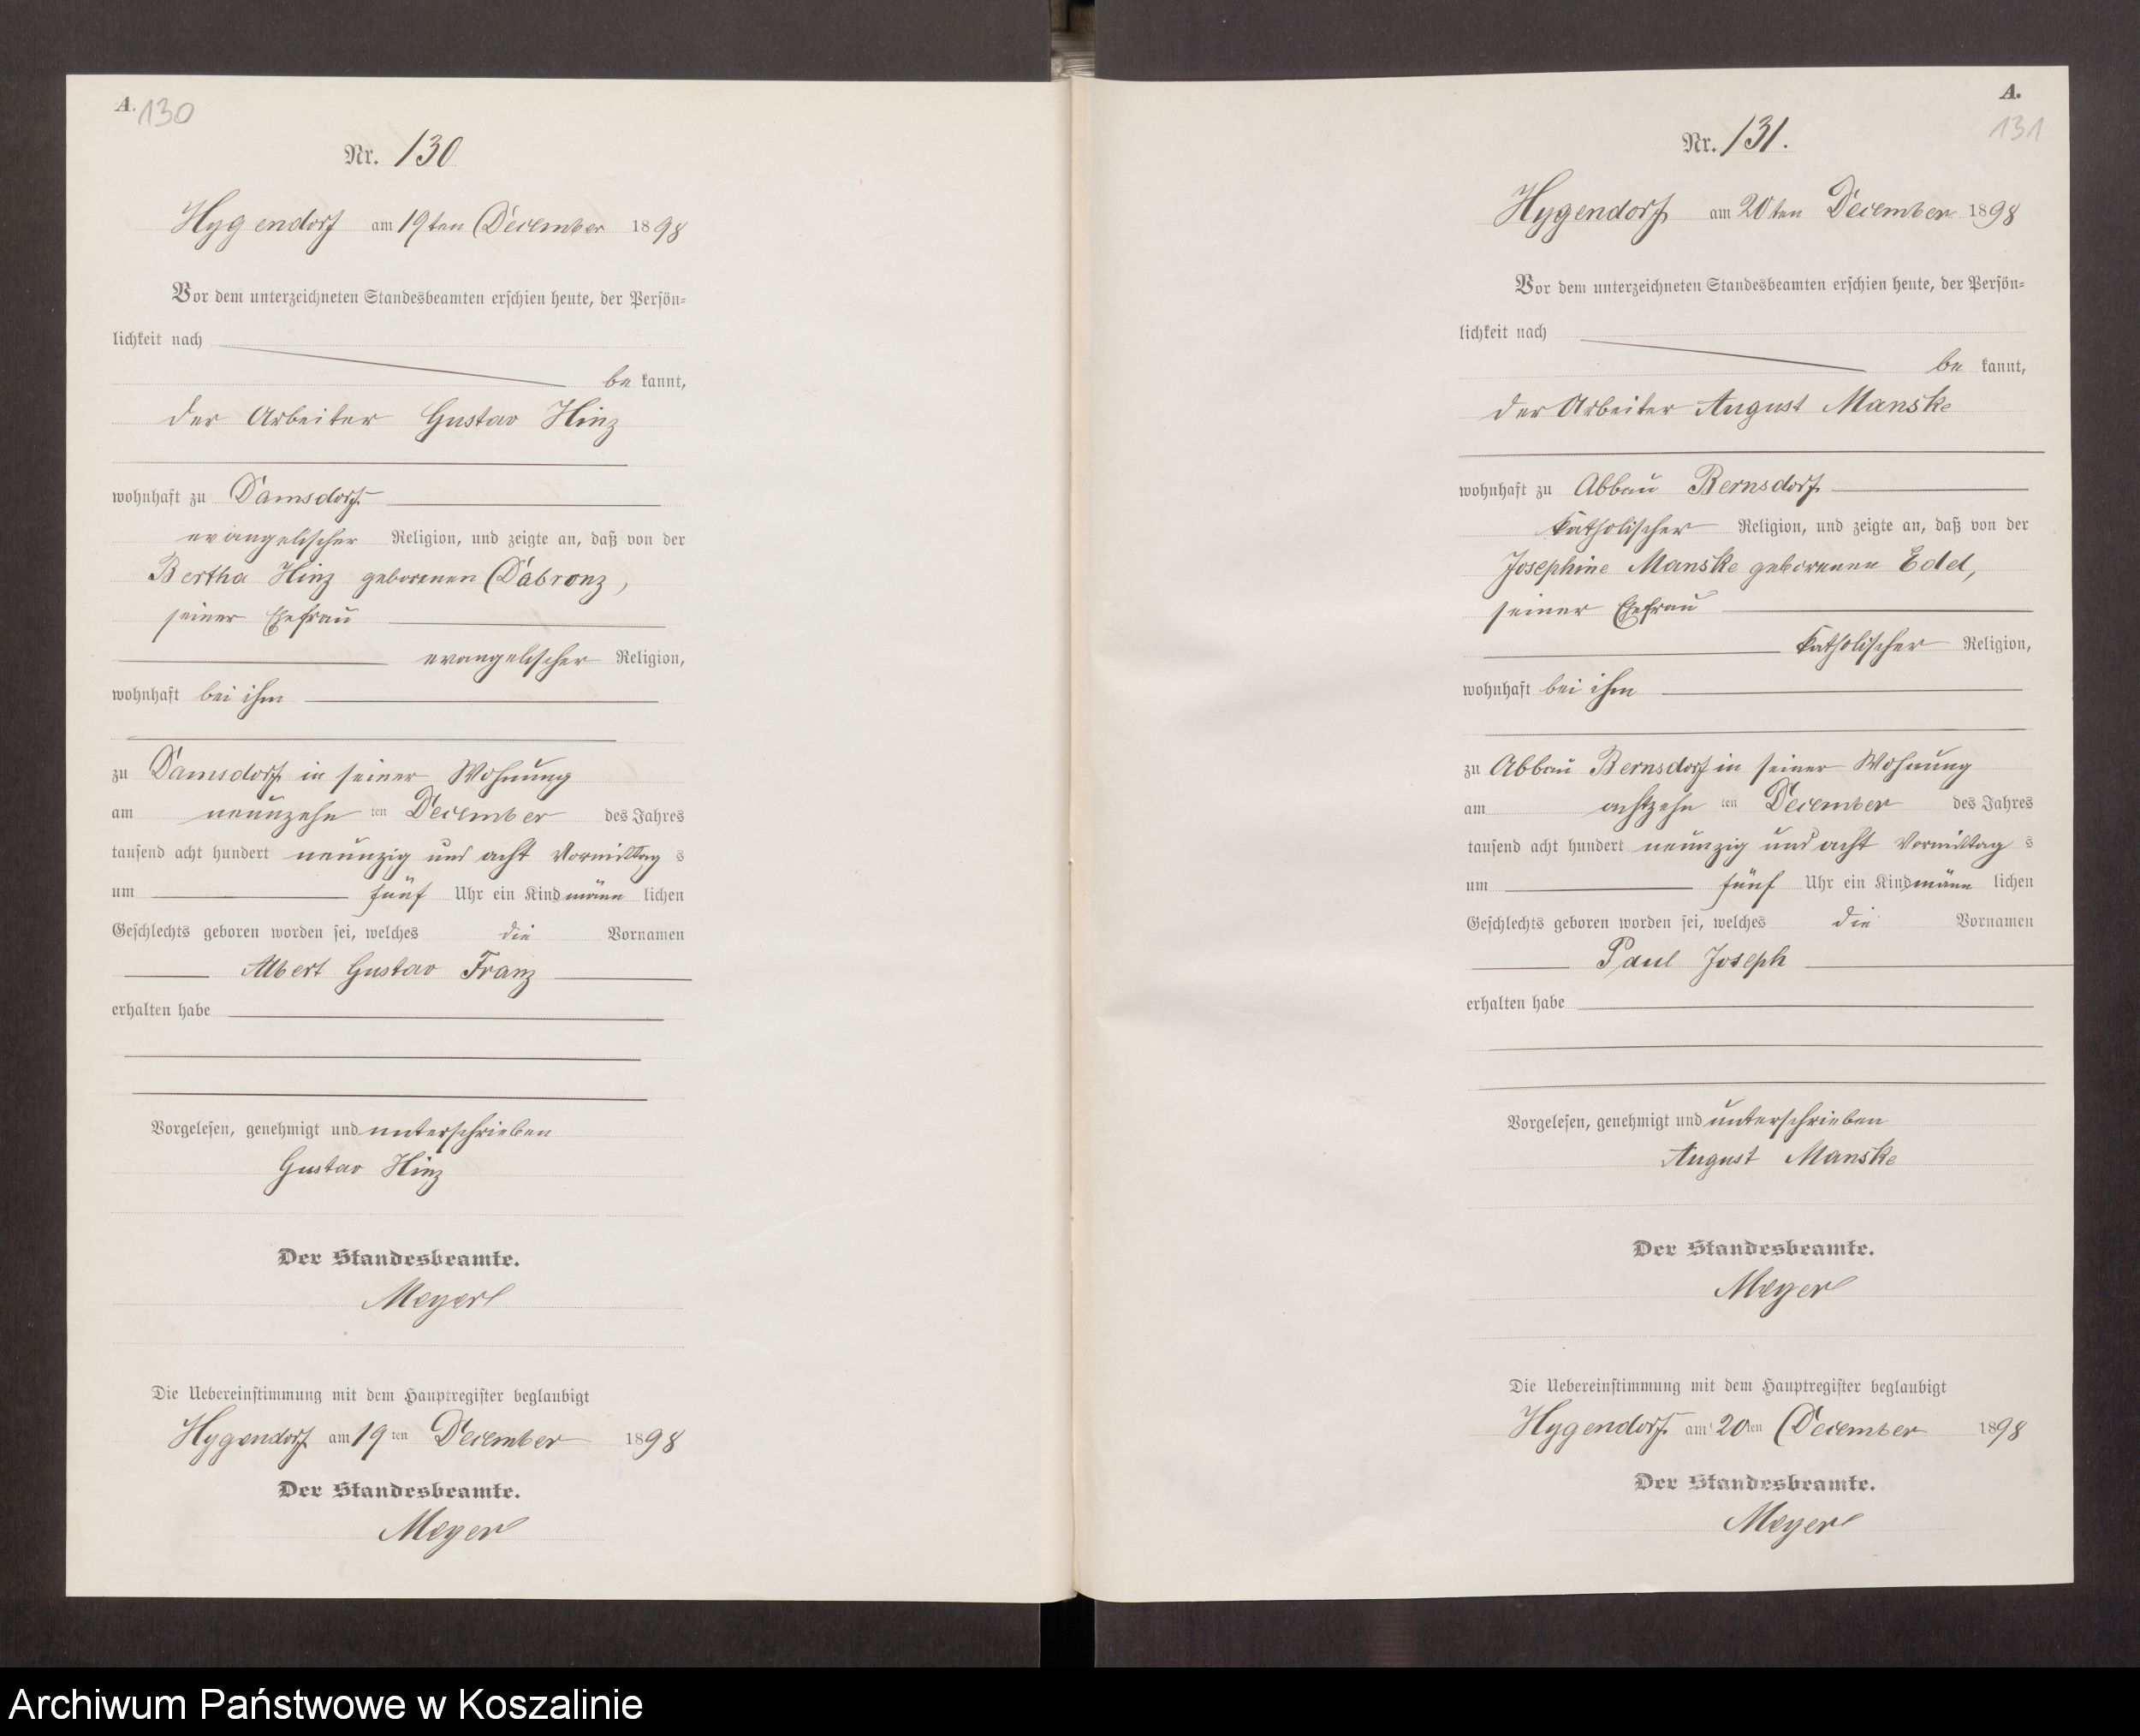 A.
130
Nr. 130
Hygendorf am 19ten December 1898
Vor dem unterzeichneten Standesbeamten erschien heute, der Persön=
lichkeit nach
be kannt,
der Arbeiter Gustav Hinz
wohnhaft zu Damsdorf
evangelischer Religion, und zeigte an, daß von der
Bertha Hinz geborenen Dabronz,
seiner Ehefrau
evangelischer Religion,
wohnhaft bei ihm
zu Damsdorf in seiner Wohnung
am neunzehn ten December des Jahres
tausend acht hundert neunzig und acht Vormittag s
um fünf Uhr ein Kind männ lichen
Geschlechts geboren worden sei, welches die Vornamen
Albert Gustav Franz
erhalten habe
Vorgelesen, genehmigt und unterschrieben
Gustav Hinz
Der Standesbeamte.
Meyer
Die Uebereinstimmung mit dem Hauptregister beglaubigt
Hygendorf am 19 ten December 1898
Der Standesbeamte.
Meyer
A.
131
Nr. 131.
Hygendorf am 20ten December 1898
Vor dem unterzeichneten Standesbeamten erschien heute, der Persön=
lichkeit nach
be kannt,
der Arbeiter August Manske
wohnhaft zu Abbau Bernsdorf
katholischer Religion, und zeigte an, daß von der
Josephine Manske geborenen Edel,
seiner Ehefrau
katholischer Religion,
wohnhaft bei ihm
zu Abbau Bernsdorf in seiner Wohnung
am achtzehn ten December des Jahres
tausend acht hundert neunzig und acht Vormittag s
um fünf Uhr ein Kind männ lichen
Geschlechts geboren worden sei, welches die Vornamen
Paul Joseph
erhalten habe
Vorgelesen, genehmigt und unterschrieben
August Manske
Der Standesbeamte.
Meyer
Die Uebereinstimmung mit dem Hauptregister beglaubigt
Hygendorf am 20ten December 1898
Der Standesbeamte.
Meyer
Archiwum Państwowe w Koszalinie